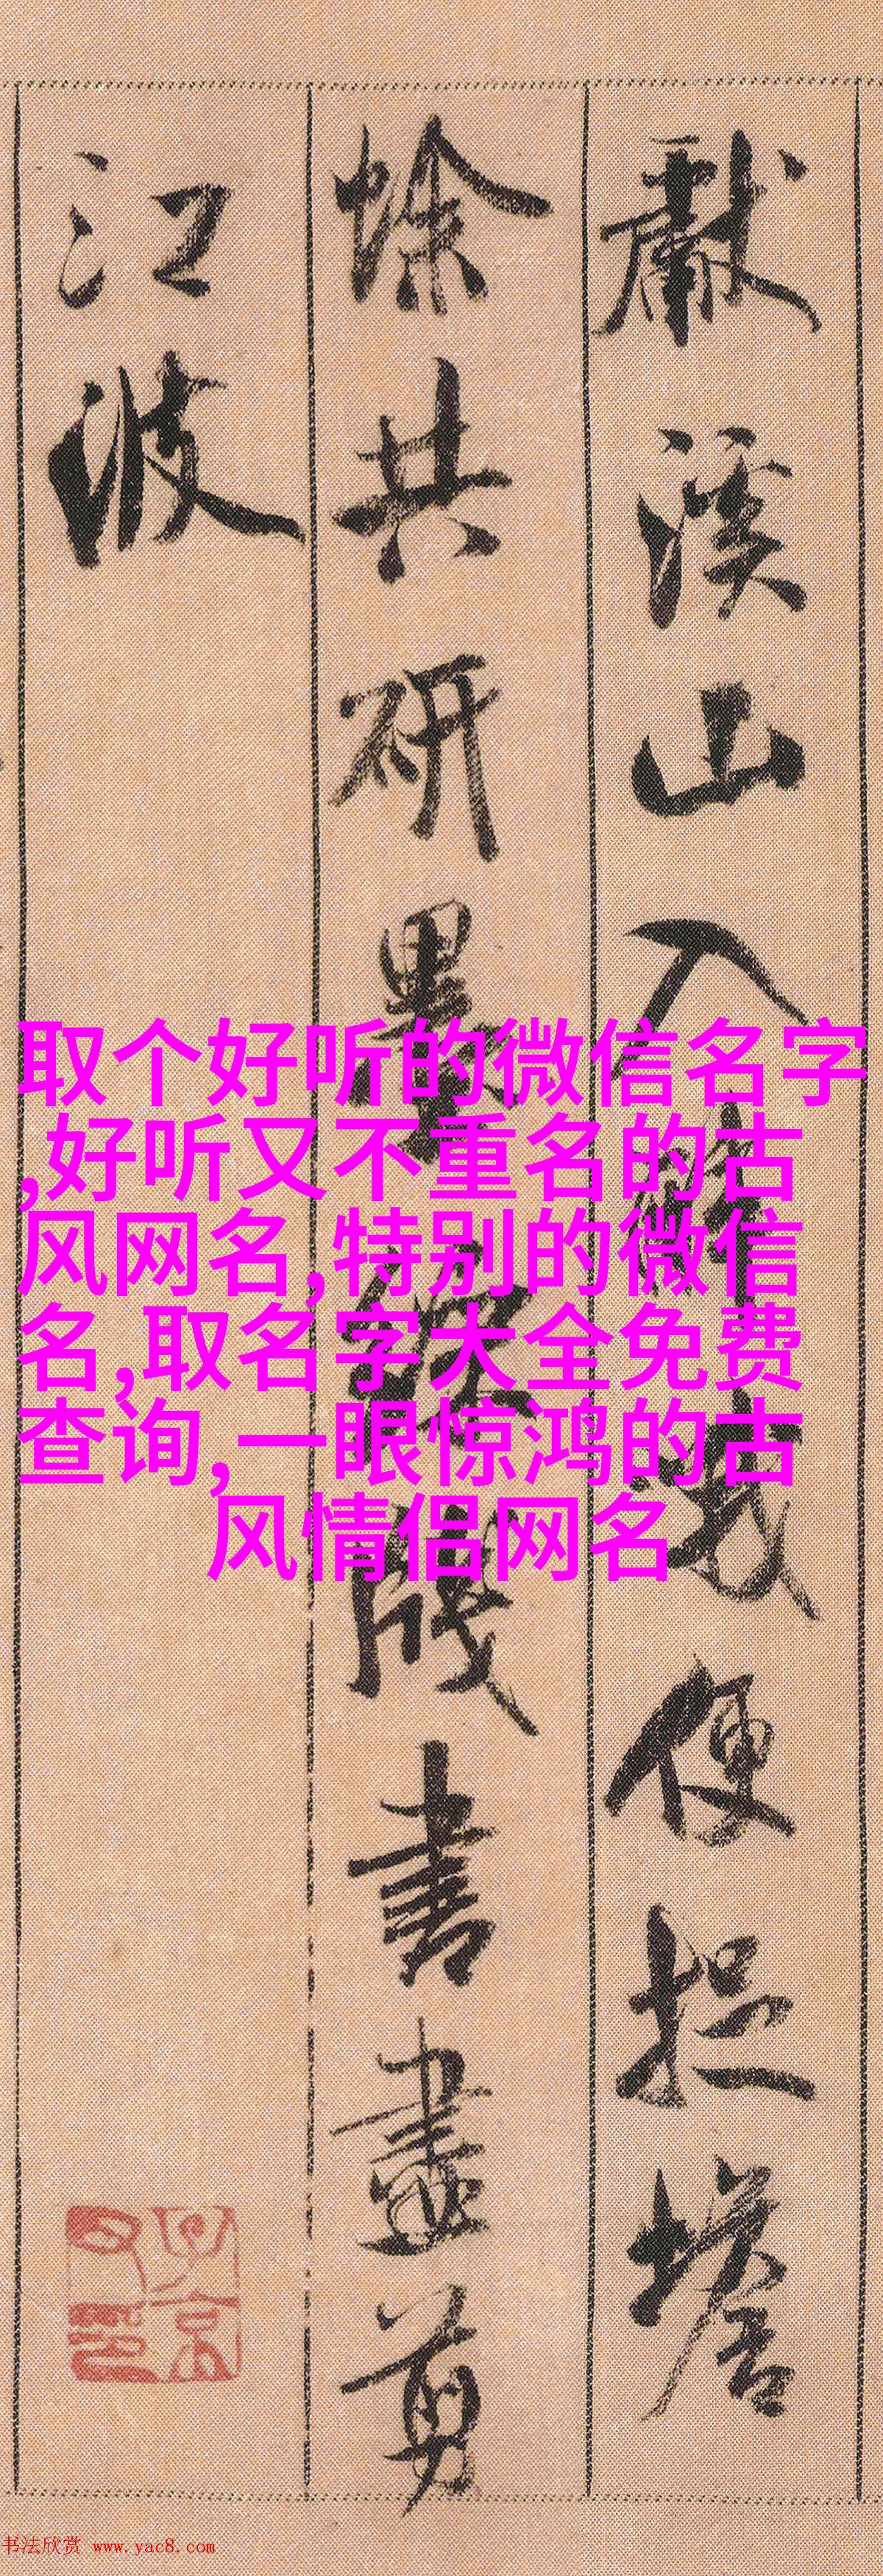 献溪山入醉哦便捉蟾
蜍共研墨綵牋書盡剪
江波
取个好听的微信名字
,好听又不重名的古
风网名,特别的微信
名,取名字大全免费
查询,一眼惊鸿的古
风情侣网名
书法欣赏 www.yac8.com